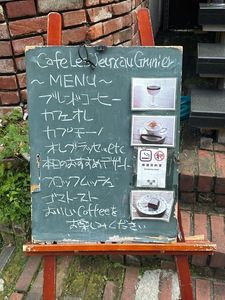 Cafe Les Jeux au Grenier
～MENU～
ブレンドコーヒー
カフェオレ
カプチーノ
オレグラッセ…etc
本日のおすすめデザート
クロックムッシュ
ゴマトースト
おいしいCoffeeを
お楽しみください